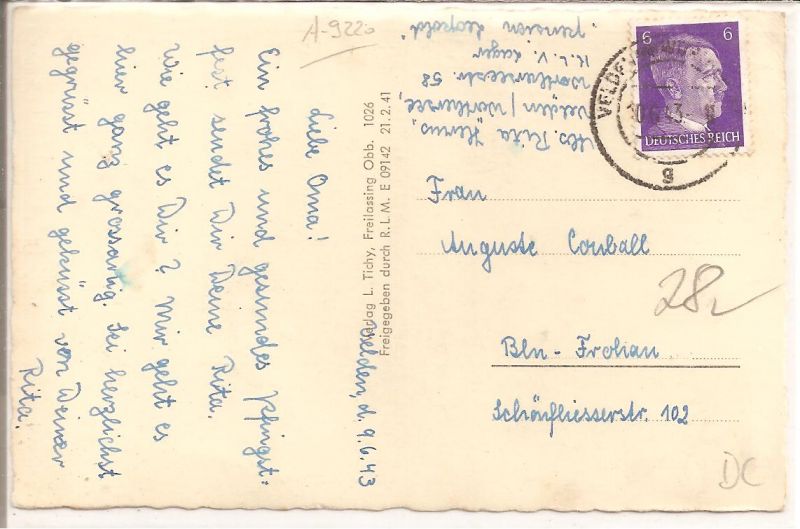 A-9220
Velden, d. 9.6.43
Liebe Oma!
Ein frohes und gesundes Pfingst-
fest sendet Dir Deine Rita.
Wie geht es Dir? Mir geht es
hier ganz grossartig. Sei herzlichst
gegrüsst und geküsst von Deiner
Rita.
Verlag L. Tichy, Freilassing Obb. 1026
Freigegeben durch R.L.M. E 09142 21.2.41
Abs. Rita
Velden/Wörthersee,
58
K.L.V. Lager
"Pension Leopold"
6 6
DEUTSCHES REICH
VELDEN
g
Frau
Auguste
Bln - Frohnau
Schönfliesserstr. 102
28
DC